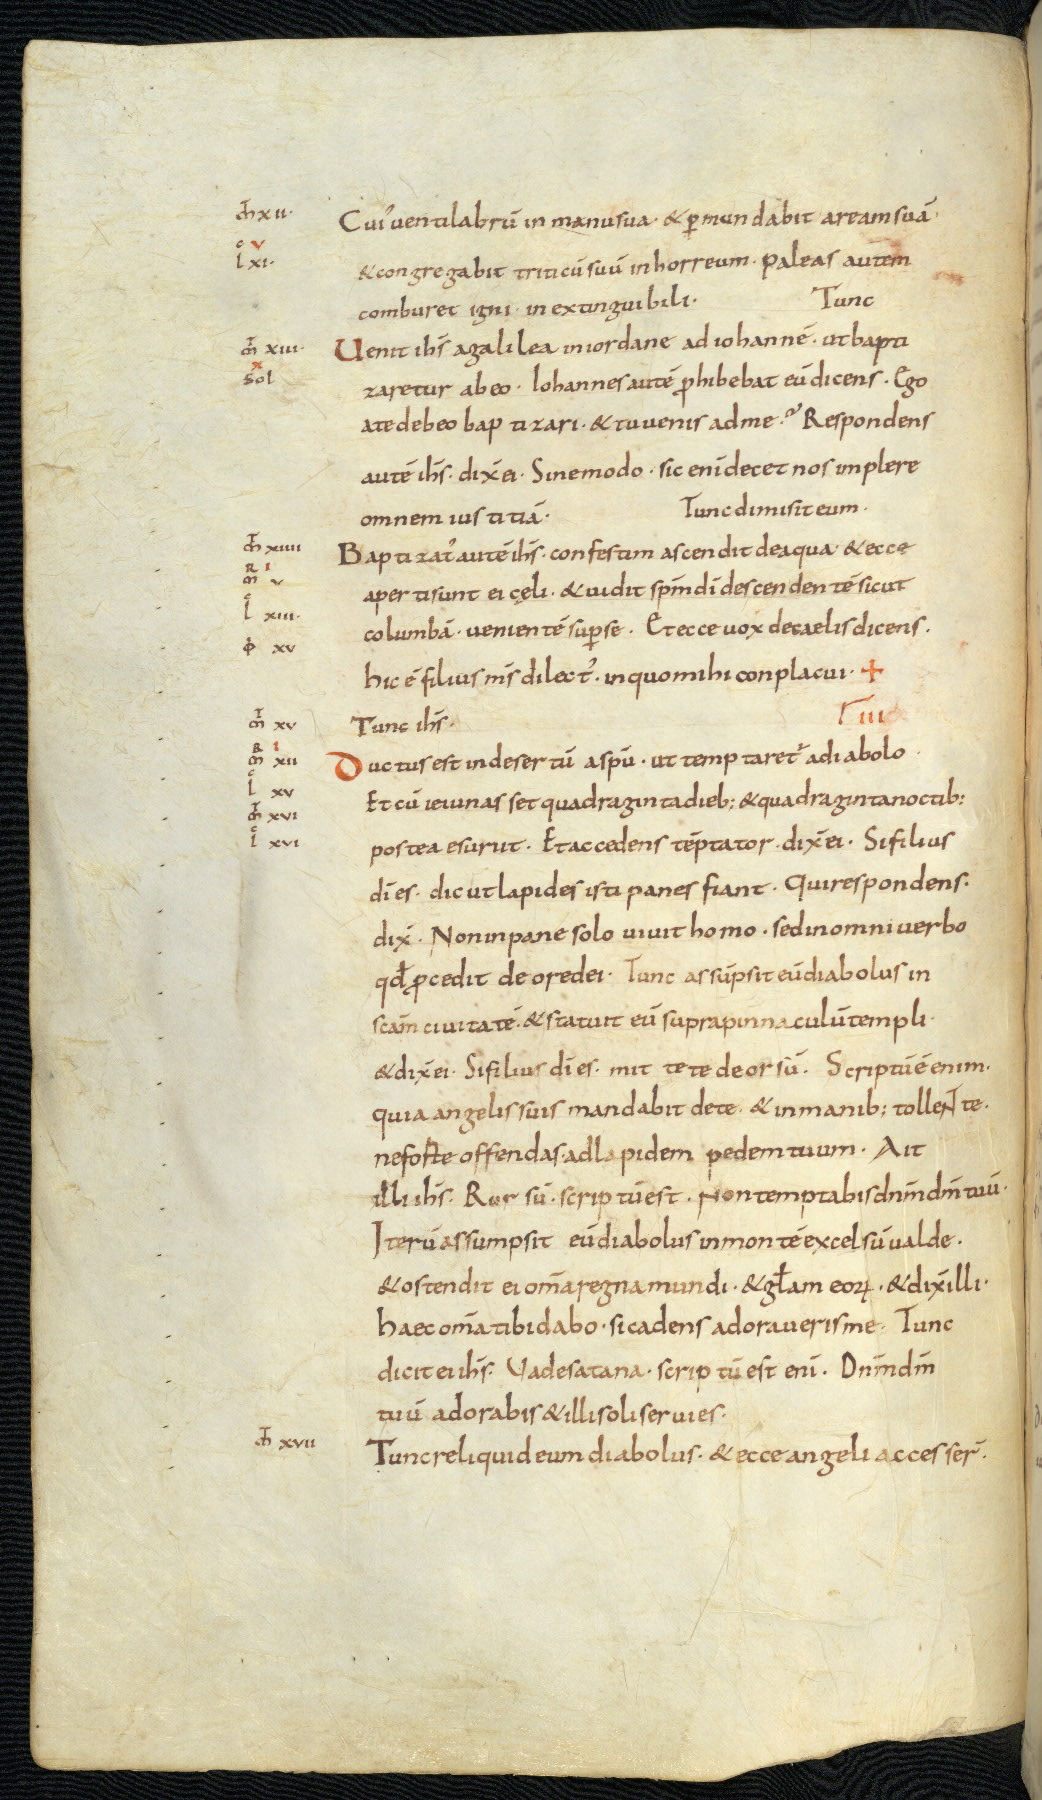 m̄ xii· Cui᷒ ventilabrū in manu sua· & p̄mundabit aream suā·
c v
l xi· & congregabit triticū suū in horreum· paleas autem
comburet igni· inextinguibili· Tunc
m̄ xiii· Uenit ih̄s a galilea in iordane ad iohannē· ut bapti
x
Sol zaretur ab eo· Iohannes autē p̄hibebat eū dicens· Ego
a te debeo baptizari· & tu venis ad me· Respondens
autē ih̄s· dix̄ ei· Sine modo· sic enī decet nos implere
omnem iustitiā· Tunc dimisit eum·
m̄ xiiii Baptizat᷒ autē ih̄s· confestim ascendit de aqua· & ecce
R i
m̄ v aperti sunt ei cęli· & uidit sp̄m dī descendentē sicut
c
l xiii· columbā· venientē sup̄ se· Et ecce uox de caelis dicens·
ıo xv
hic ē filius m̄s dilect᷒· in quo mihi conplacui· +
m̄ xv Tunc ih̄s· iii
R i
m̄ xii Ductus est in desertū a sp̄u· ut temptaret᷒ a diabolo
c
l xv Et cū ieiunasset quadraginta dieb; & quadraginta noctib;
m̄ xvi
c
l xvi postea esurut· Et accedens tēptator· dix̄ ei· Si filius
dī es· dic ut lapides isti panes fiant· Qui respondens·
dix̄· Non in pane solo uiuit homo· sed in omni verbo
qd̄ p̄cedit de ore dei· Tunc assūpsit eū diabolus in
scām ciuitatē· & statuit eū supra pinnaculū templi·
& dix̄ ei· Si filius dī es· mitte te deorsū· Scriptū ē enim·
quia angelis suis mandabit de te· & in manib; tollent te·
ne forte offendas· ad lapidem pedem tuum· Ait
illi ih̄s· Rursū· scriptū est· Non temptabis dn̄m dm̄ tuū·
Iterū assumpsit eū diabolus in montē excelsū ualde·
& ostendit ei om̄a regna mundi· & gl̄am eoꝝ· & dix̄ illi·
haec om̄a tibi dabo· si cadens adoraueris me· Tunc
dicit ei ih̄s· Vade satana· scriptū est enī· Dn̄m dm̄
tuū adorabis & illi soli seruies·
m̄ xvii Tunc reliquid eum diabolus· & ecce angeli accesser̄·